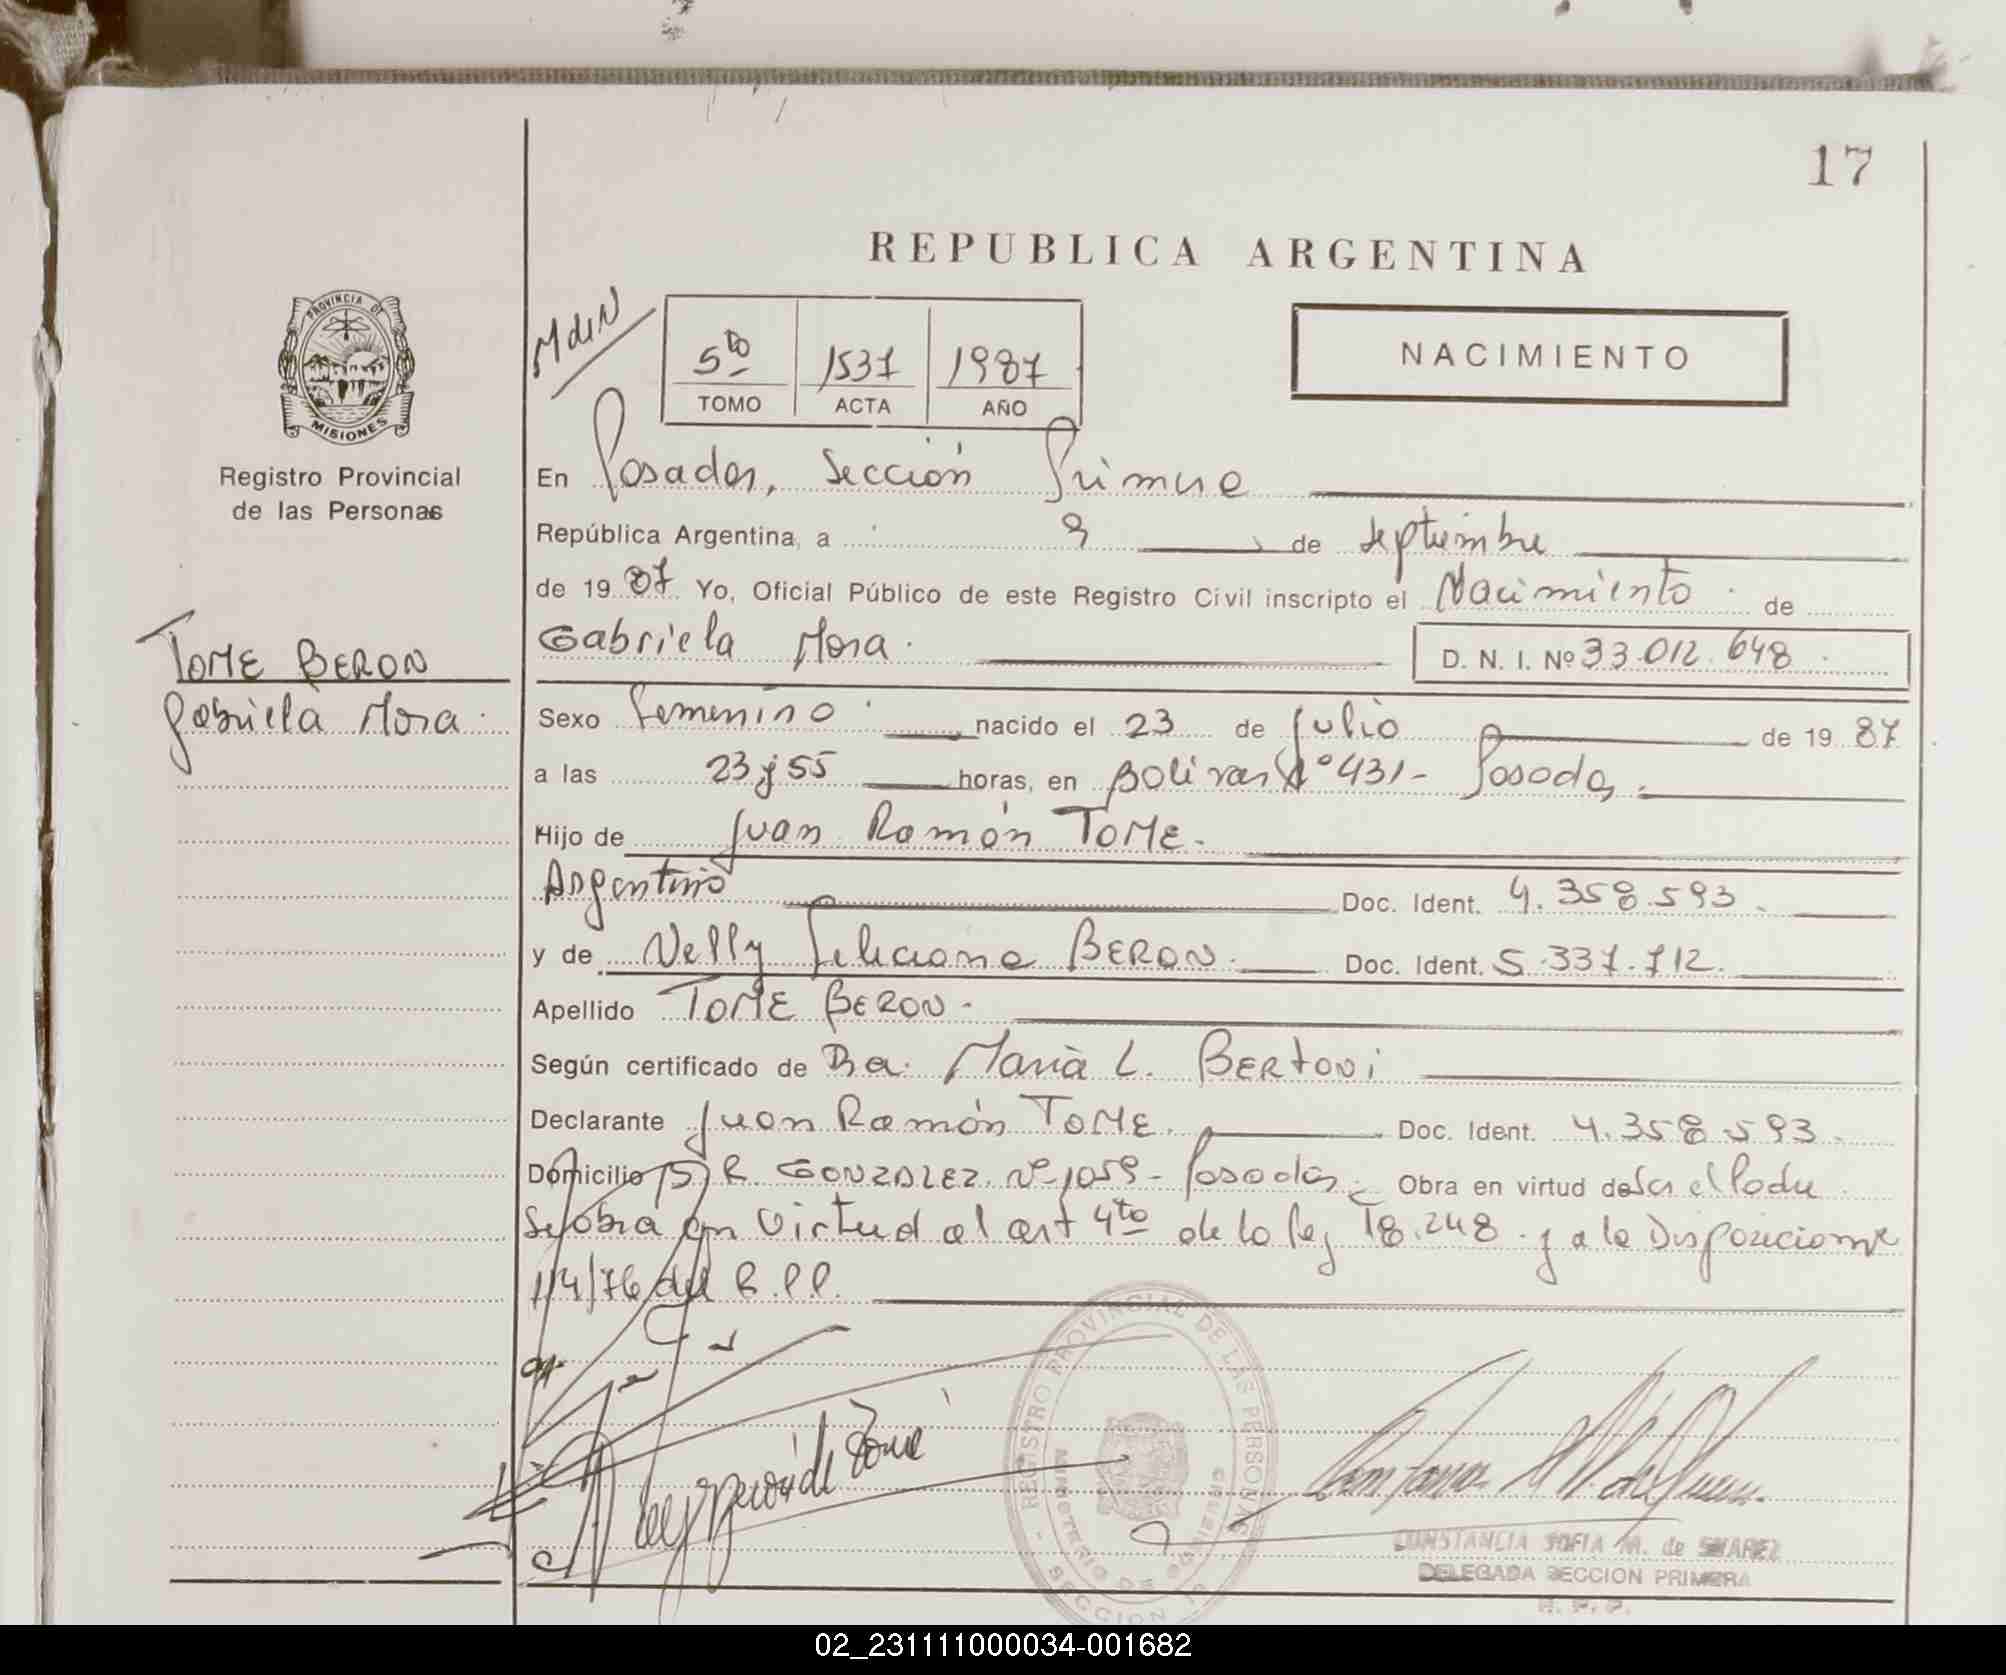 17
REPUBLICA ARGENTINA
M de N
5to 1537 1987
TOMO ACTA AÑO
NACIMIENTO
PROVINCIA DE
MISIONES
Registro Provincial
de las Personas
TOME BERON
Gabriela Mora.
En Posadas, Sección Primera
República Argentina, a 9 de septiembre
de 1987 Yo, Oficial Público de este Registro Civil inscripto el Nacimiento de
Gabriela Mora. D. N. I. Nº 33.012.648
Sexo Femenino nacido el 23 de Julio de 1987
a las 23 y 55 horas, en Bolivar Nº 431- Posadas
Hijo de Juan Ramón TOME.
Argentino Doc. Ident. 4.358.593.
y de Nelly Feliciana BERON. Doc. Ident. 5.337.712.
Apellido TOME BERON.
Según certificado de Dra. María L. BERTONI
Declarante Juan Ramón TOME. Doc. Ident. 4.358.593.
Domicilio R. GONZALEZ Nº 1059- Posadas Obra en virtud de Ser el Padre
Se obra en virtud al art 4to de la ley 18.248 y a la Disposicione
1/4/76 del R.P.P.
REGISTRO PROVINCIAL DE LAS PERSONAS
MINISTERIO DE GOBIERNO
SECCION 1ª
CONSTANCIA SOFIA M. de SUAREZ
DELEGADA SECCION PRIMERA
R. P. P.
02_231111000034-001682